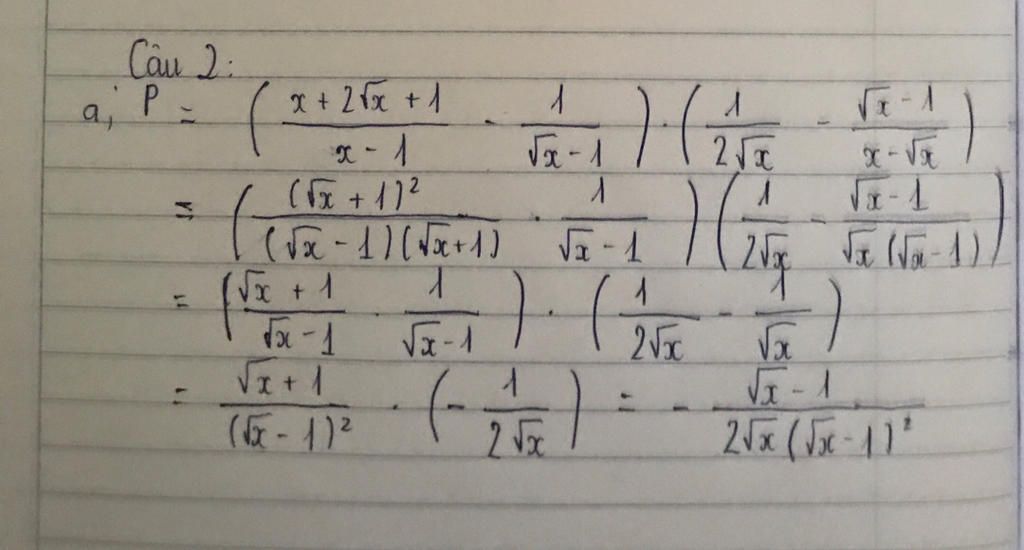 Câu 2:
a, P = ( \frac{x + 2\sqrt{x} + 1}{x - 1} - \frac{1}{\sqrt{x} - 1} ) \cdot ( \frac{1}{2\sqrt{x}} - \frac{\sqrt{x} - 1}{x - \sqrt{x}} )
= ( \frac{(\sqrt{x} + 1)^2}{(\sqrt{x} - 1)(\sqrt{x} + 1)} \cdot \frac{1}{\sqrt{x} - 1} ) ( \frac{1}{2\sqrt{x}} - \frac{\sqrt{x} - 1}{\sqrt{x}(\sqrt{x} - 1)} )
= ( \frac{\sqrt{x} + 1}{\sqrt{x} - 1} \cdot \frac{1}{\sqrt{x} - 1} ) \cdot ( \frac{1}{2\sqrt{x}} - \frac{1}{\sqrt{x}} )
= \frac{\sqrt{x} + 1}{(\sqrt{x} - 1)^2} \cdot ( - \frac{1}{2\sqrt{x}} ) = - \frac{\sqrt{x} - 1}{2\sqrt{x}(\sqrt{x} - 1)^2}